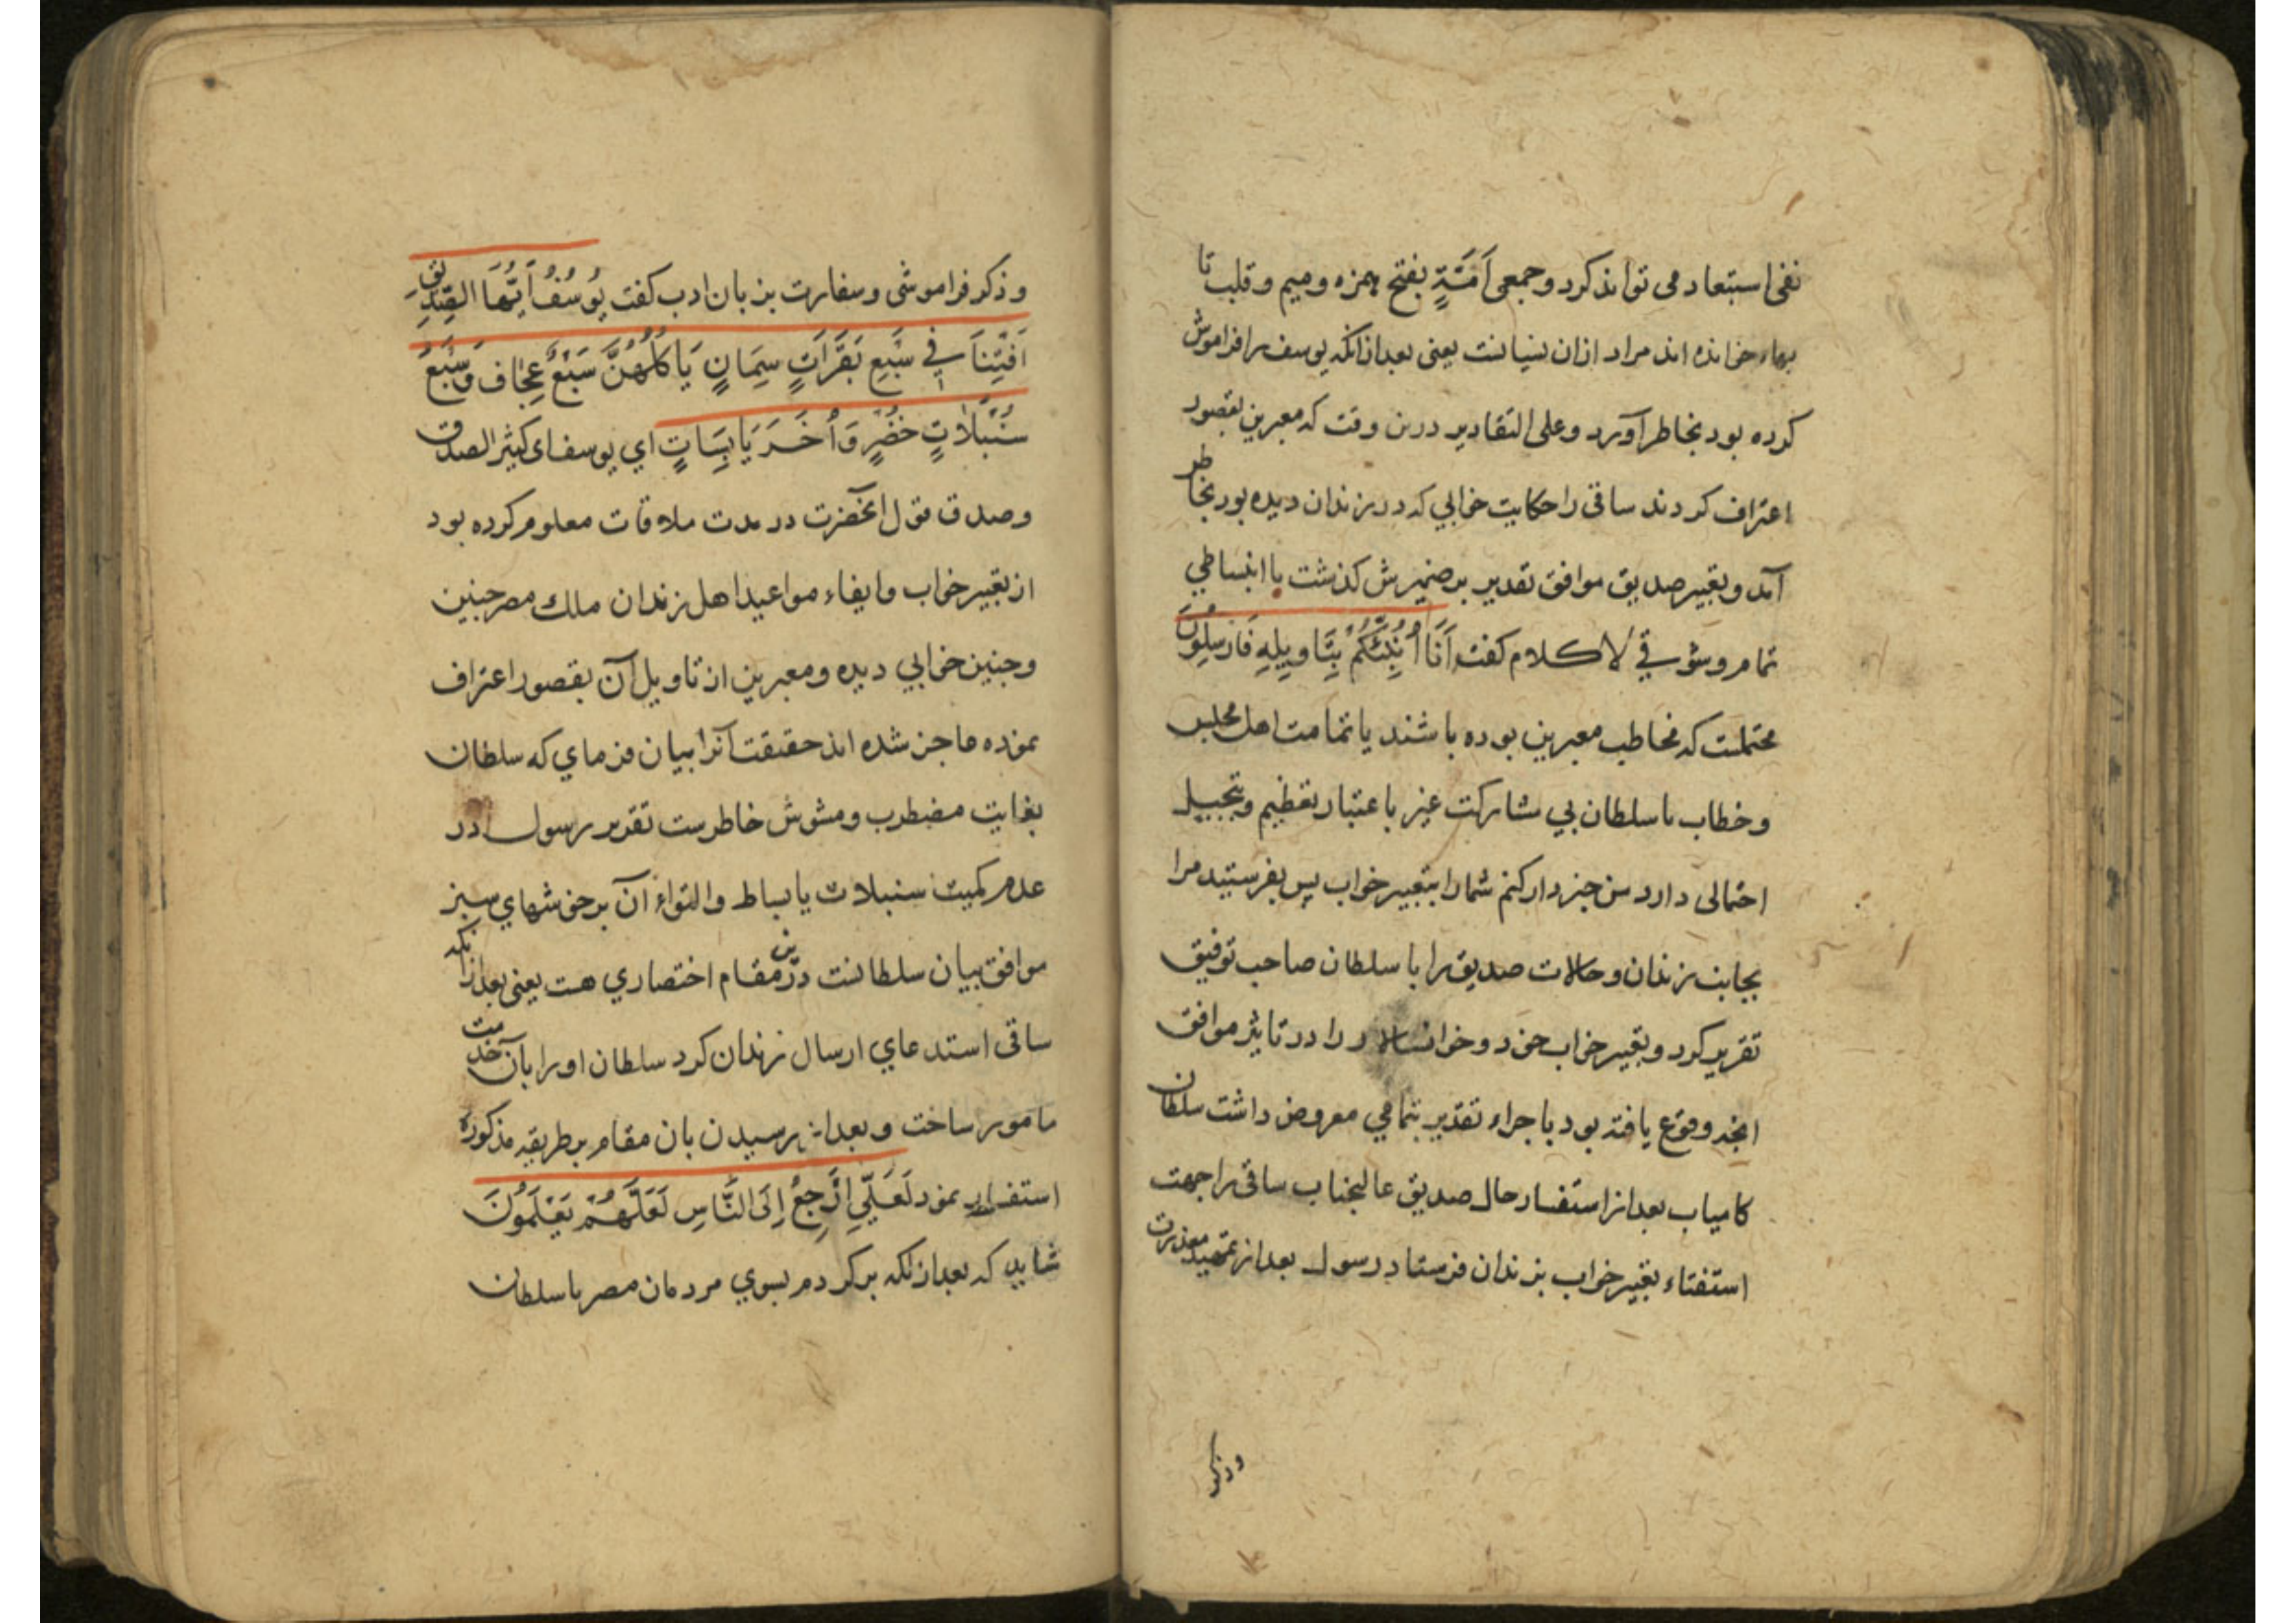 نفی استبعاد می تواند کرد و جمعی اَمَتَةٍ بفتح همزه و میم و قلب تا
بهاء خوانده اند مراد ازان نسیانست یعنی بعد ازانکه یوسف را فراموش
کرده بود بخاطر آورد و علی التقادیر درین وقت که معبرین بقصور
اعتراف کردند ساقی را حکایت خوابی که در زندان دیده بود بخاطر
آمد و تعبیر صدیق موافق تقدیر بر ضمیرش گذشت با انبساطی
تمام و شوقی لا کلام کفت اَنَا اُنَبِّئُکُمْ بِتَاوِیلِهِ فَاَرْسِلُونَ
محتملست که مخاطب معبرین بوده باشند یا تمامت اهل مجلس
و خطاب با سلطان بی مشارکت غیر باعتبار تعظیم و تبجیل
احتمالی دارد من خبردار کنم شما را بتعبیر خواب پس بفرستید مرا
بجانب زندان و حالات صدیق را با سلطان صاحب توفیق
تقریر کرد و تعبیر خواب خود و خوانسالار را در تاثیر موافق
انچه وقوع یافته بود باجراء تقدیر بتمامی معروض داشت سلطان
کامیاب بعد از استفسار حال صدیق عالیجناب ساقی را جهت
استفتاء تعبیر خواب بزندان فرستاد رسول بعد از تمهید معذرت
و ذکر
و ذکر فراموشی و سفارت بزبان ادب کفت یُوسُفُ اَیُّهَا الصِّدِّیقُ
اَفْتِنَا فِی سَبْعِ بَقَرَاتٍ سِمَانٍ یَاکُلُهُنَّ سَبْعٌ عِجَافٌ وَسَبْعِ
سُنْبُلَاتٍ خُضْرٍ وَاُخَرَ یَابِسَاتٍ ای یوسف ای کثیر الصدق
و صدق قول انحضرت در مدت ملاقات معلوم کرده بود
از تعبیر خواب و ایفاء مواعید اهل زندان ملک مصر چنین
و چنین خوابی دیده و معبرین از تاویل آن بقصور اعتراف
نموده عاجز شده اند حقیقت آنرا بیان فرمای که سلطان
بغایت مضطرب و مشوش خاطرست تقریر رسول در
عدم کمیت سنبلات یابساط و التواء آن بر خوشهای سبز
موافق بیان سلطانست درین مقام اختصاری هست یعنی بعد ازانکه
ساقی استدعای ارسال زندان کرد سلطان او را بآن خدمت
مامور ساخت و بعد از رسیدن بان مقام بر طریقه مذکوره
استفسار نمود لَعَلِّی اَرْجِعُ اِلَی النَّاسِ لَعَلَّهُمْ یَعْلَمُونَ
شاید که بعد ازانکه برکردم بسوی مردمان مصر با سلطان